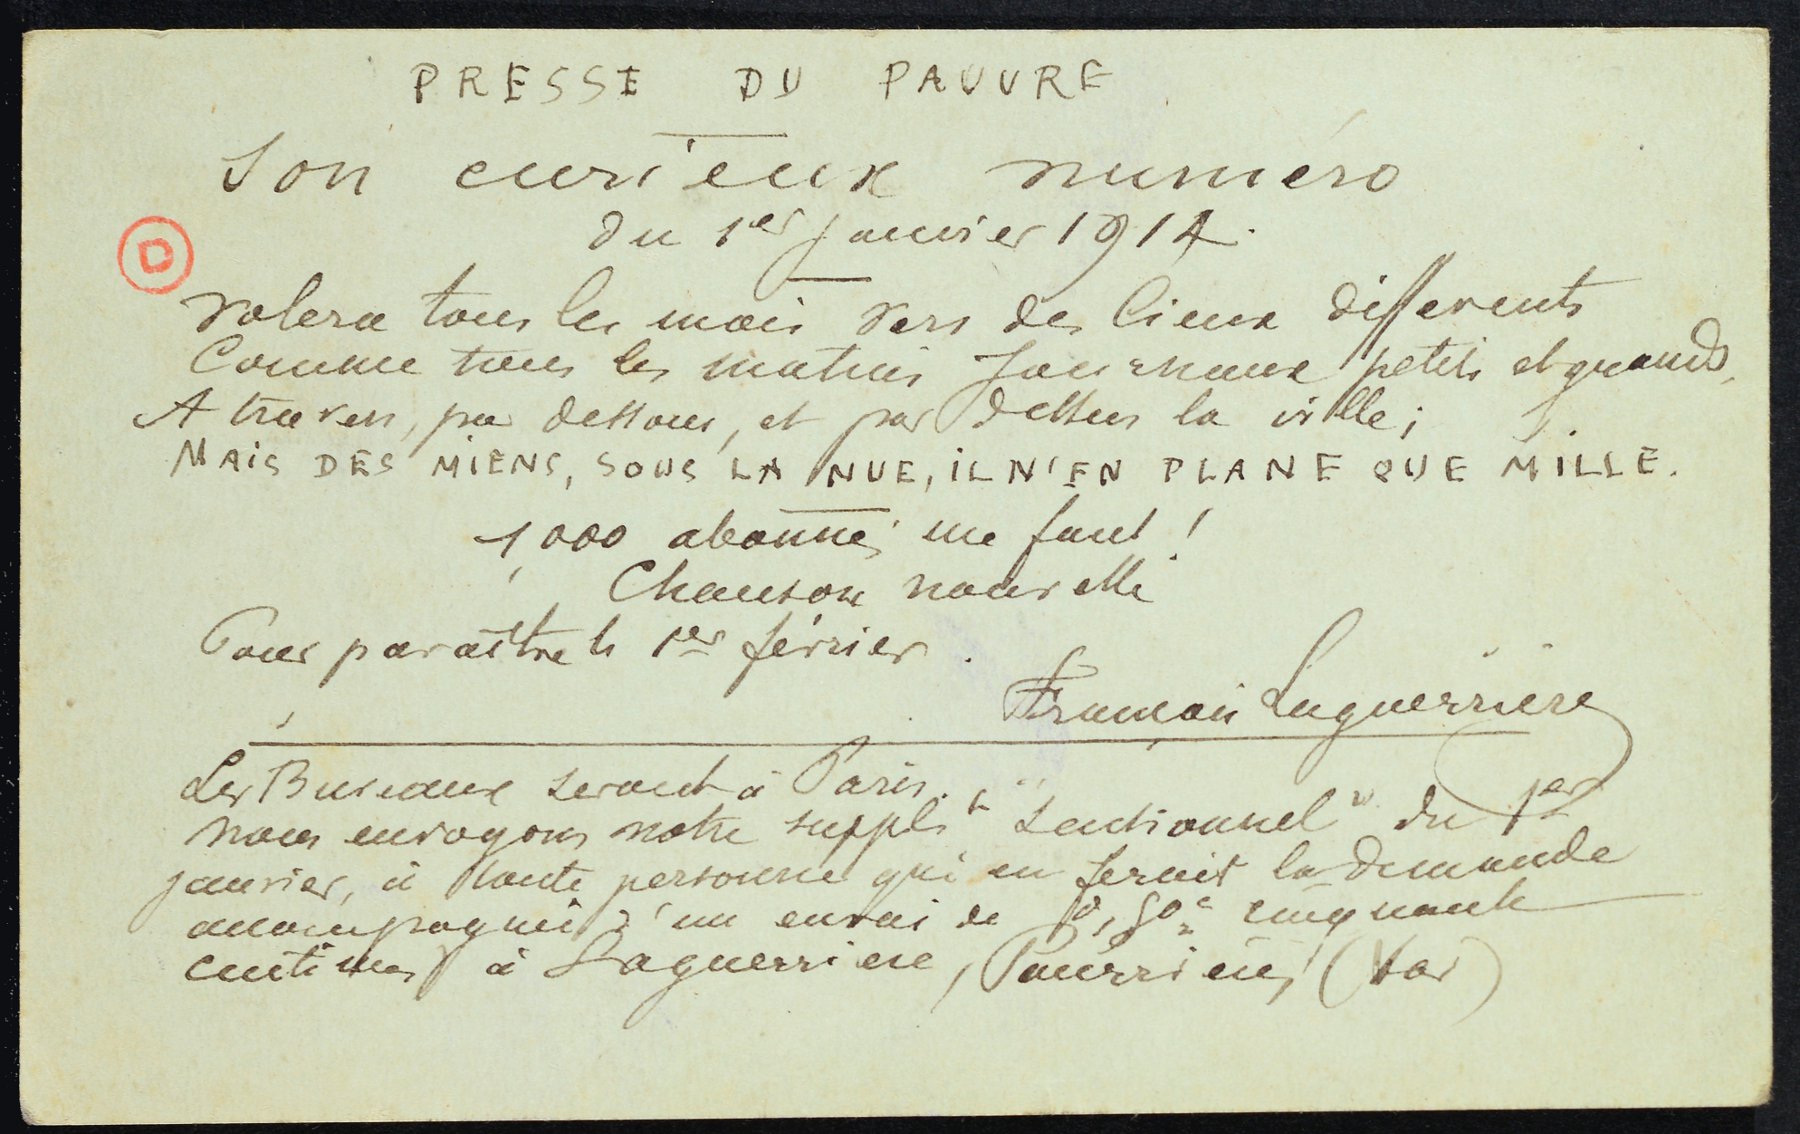 PRESSE DU PAUVRE
Son curieux numéro
du 1er Janvier 1914.
D
Volera tous les mois vers des lieux différents
Comme tous les matins Journaux petits et grands,
A travers, par dessous, et par dessus la ville;
MAIS DES MIENS, SOUS LA NUE, IL N'EN PLANE QUE MILLE.
1,000 abonnés me faut!
Chanson nouvelle
Pour paraître le 1er février.
François Laguerrière
Les Bureaux seront à Paris.
nous envoyons notre supplt "Sensationnel" du 1er
janvier, à toute personne qui en ferait la demande
accompagnée d'un envoi de 0,50c cinquante
centimes à Laguerriere, Pourrières (Var)